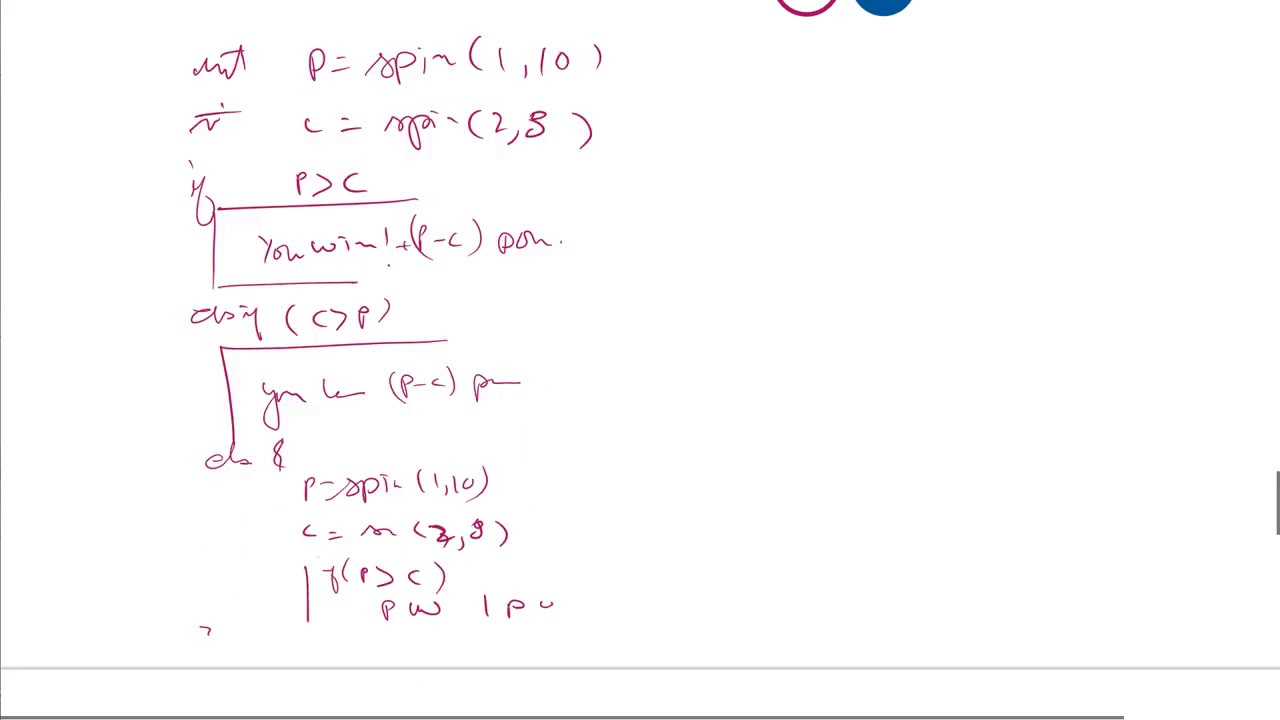 int P = spin(1,10)
c = spin(2,8)
if P>C
You win! +(P-C) poin.
elsif (C>P)
you (P-C) p
els {
P=spin(1,10)
c = (2,8)
if(P>C)
P w 1 p